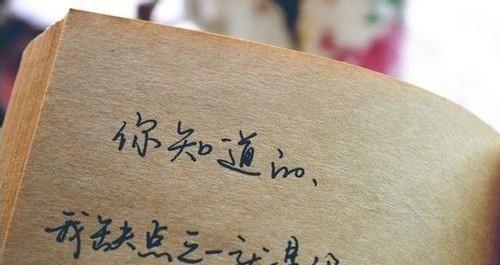 你知道的、
我缺点之一就是